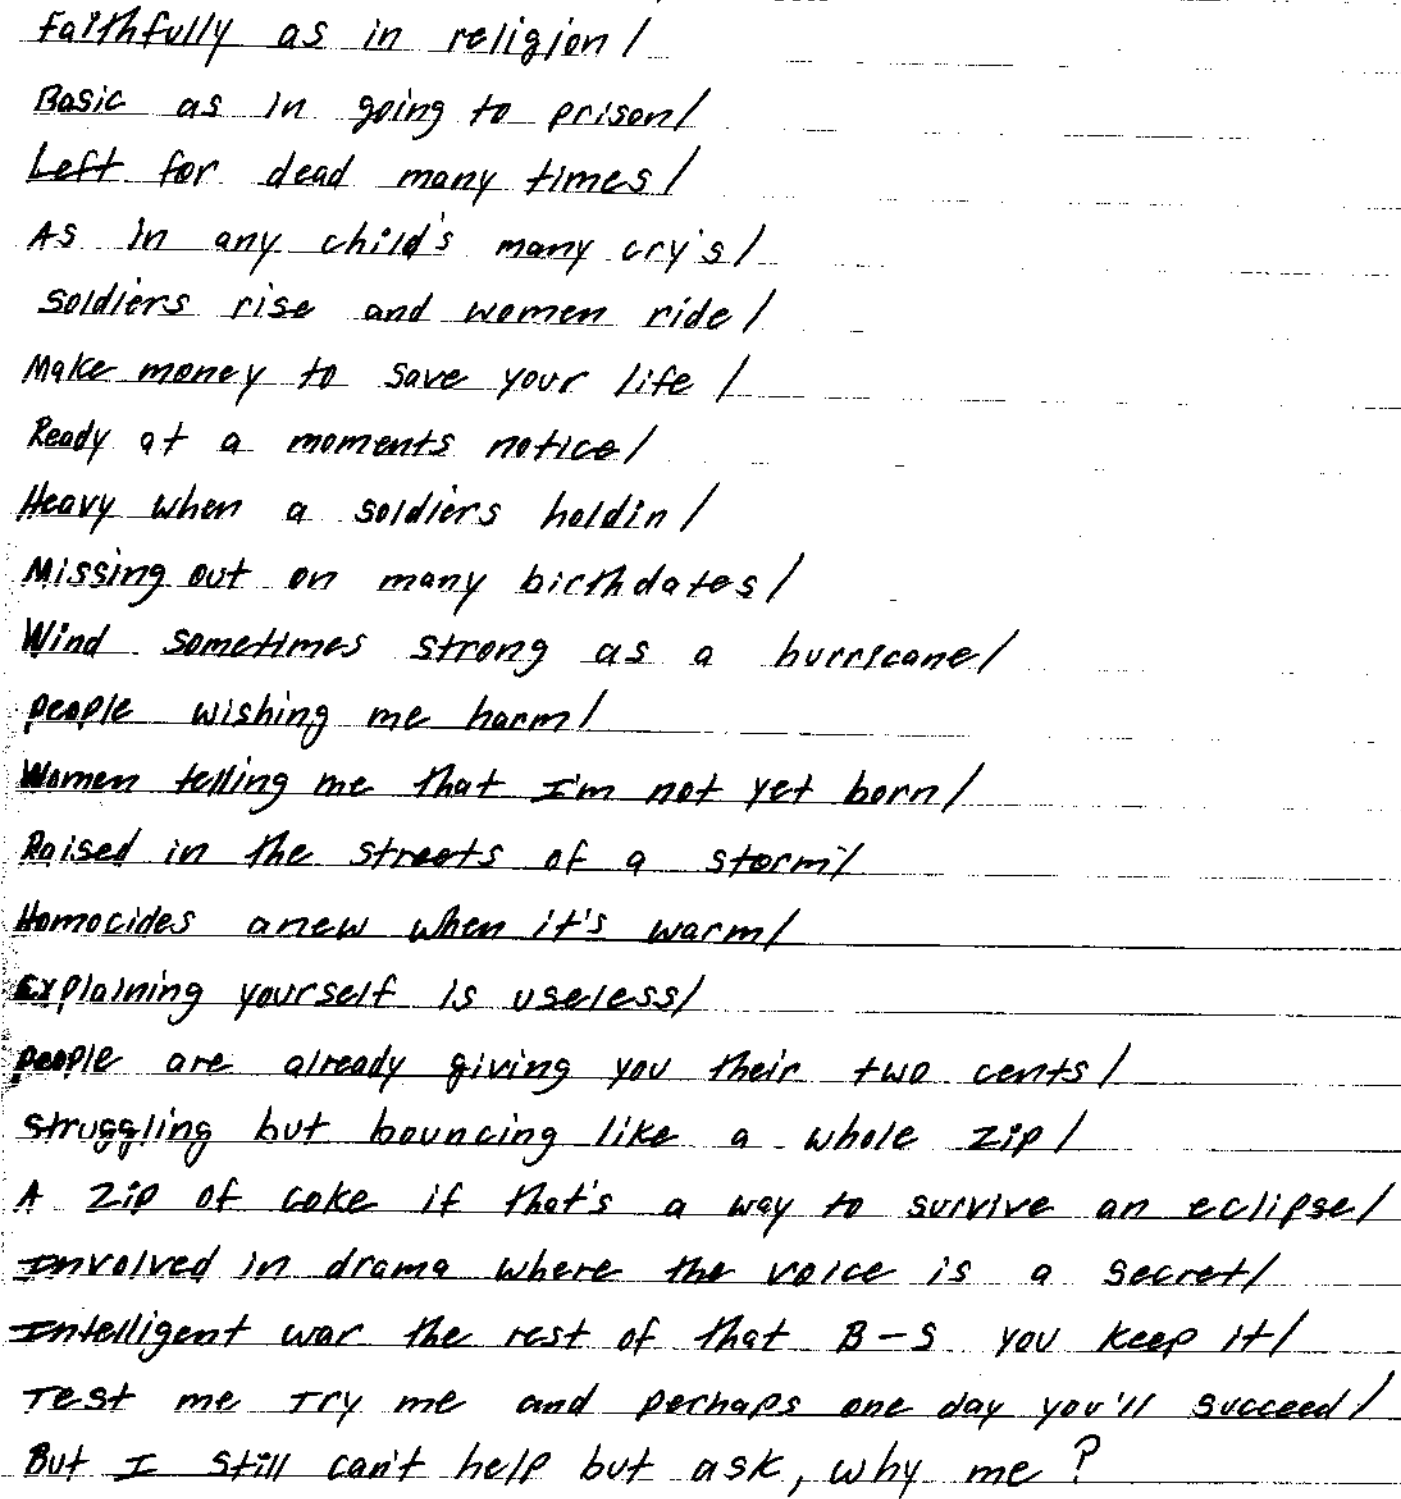 Faithfully as in religion/
Basic as in going to prison/
Left for dead many times/
As in any child's many cry's/
Soldiers rise and women ride/
Make money to save your life/
Ready at a moments notice/
Heavy when a soldiers holdin/
Missing out on many birthdates/
Wind sometimes strong as a hurricane/
people wishing me harm/
Women telling me that I'm not yet born/
Raised in the streets of a storm/
Homocides anew when it's warm/
Explaining yourself is useless/
people are already giving you their two cents/
Struggling but bouncing like a whole zip/
A zip of coke if that's a way to survive an eclipse/
Involved in drama where the voice is a secret/
Intelligent war the rest of that B-S you keep it/
Test me Try me and perhaps one day you'll succeed/
But I still can't help but ask, why me?